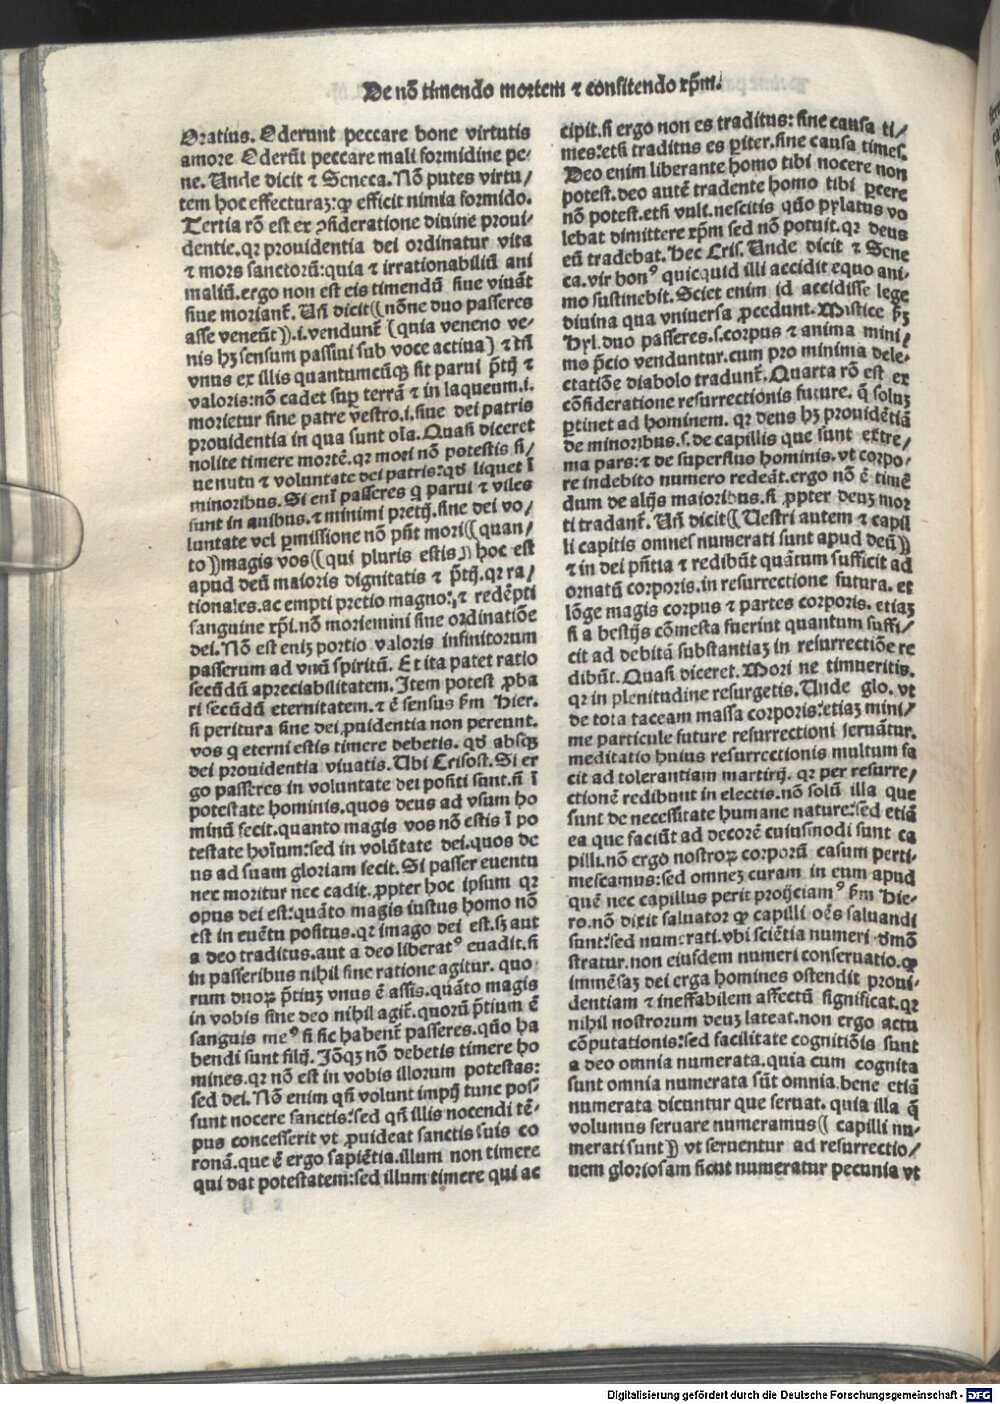 De nō timendo mortem ⁊ confitendo xp̄m.
Oratius. Oderunt peccare bone virtutis
amore Oderūt peccare mali formidine pe-
ne. Unde dicit ⁊ Seneca. Nō putes virtu/
tem hoc effecturaꝫ: ꝙ efficit nimia formido.
Tertia rō est ex ꝯsideratione diuine proui-
dentie. qꝛ prouidentia dei ordinatur vita
⁊ mors sanctorū: quia ⁊ irrationabiliū ani
maliū. ergo non est eis timendū siue viuāt
siue moriant̄. Uñ dicit (( nōne duo passeres
asse veneūt )) .i. vendunt̄ ( quia veneno ve-
nis hꝫ sensum passiui sub voce actiua ) ⁊ tñ
vnus ex illis quantumcūqꝫ sit parui p̄tij ⁊
valoris: nō cadet suꝑ terrā ⁊ in laqueum .i.
morietur sine patre vestro .i. siue dei patris
prouidentia in qua sunt oīa. Quasi diceret
nolite timere mortē. qꝛ mori nō potestis si/
ne nutu ⁊ voluntate dei patris: qd̄ liquet ī
minoribus. Si enī passeres q̄ parui ⁊ viles
sunt in auibus. ⁊ minimi pretij. sine dei vo/
luntate vel ꝑmissione nō pn̄t mori (( quan/
to )) magis vos (( qui pluris estis )) hoc est
apud deū maioris dignitatis ⁊ p̄tij. qꝛ ra/
tionales. ac empti pretio magno: ⁊ redēpti
sanguine xp̄i. nō moriemini sine ordinatiōe
dei. Nō est eniꝫ portio valoris infinitorum
passerum ad vnū spiritū. Et ita patet ratio
secūdū apreciabilitatem. Item potest ꝓba
ri secūdū eternitatem. ⁊ ē sensus ẜm Hier.
si peritura sine dei ꝓuidentia non pereunt.
vos q̄ eterni estis timere debetis. qd̄ absqꝫ
dei prouidentia viuatis. Ubi Crisost. Si er
go passeres in voluntate dei positi sunt. ñ ī
potestate hominis. quos deus ad vsum ho
minū fecit. quanto magis vos nō estis ī po
testate hoīum: sed in volūtate dei. quos de
us ad suam gloriam fecit. Si passer euentu
nec moritur nec cadit. ꝓpter hoc ipsum qꝛ
opus dei est: quāto magis iustus homo nō
est in euētu positus. qꝛ imago dei est. sꝫ aut
a deo traditus. aut a deo liberatꝰ euadit. si
in passeribus nihil sine ratione agitur. quo
rum duoꝝ p̄tiuꝫ vnus ē assis. quāto magis
in vobis sine deo nihil agit̄. quorū p̄tium ē
sanguis meꝰ si sic habent̄ passeres. quō ha
bendi sunt filij. Iōqꝫ nō debetis timere ho
mines. qꝛ nō est in vobis illorum potestas:
sed dei. Nō enim qn̄ volunt impij tunc pos-
sunt nocere sanctis: sed qn̄ illis nocendi tē-
pus concesserit vt ꝓuideat sanctis suis co
ronā. que ē ergo sapiētia. illum non timere
qui dat potestatem: sed illum timere qui ac
cipit. si ergo non es traditus: sine causa ti/
mes: etsi traditus es ꝑiter. sine causa times.
Deo enim liberante homo tibi nocere non
potest. deo autē tradente homo tibi ꝑcere
nō potest. etsi vult. nescitis quō pylatus vo
lebat dimittere xp̄m sed nō potuit. qꝛ deus
eū tradebat. Hec Cris. Unde dicit ⁊ Sene
ca. vir bonꝰ quicquid illi accidit equo ani-
mo sustinebit. Sciet enim id accidisse lege
diuina qua vniuersa ꝓcedunt. Mistice ẜꝫ
Hyl. duo passeres .s. corpus ⁊ anima mini/
mo p̄cio venduntur. cum pro minima dele-
ctatiōe diabolo tradunt̄. Quarta rō est ex
cōsideratione resurrectionis future. q̄ soluꝫ
ꝑtinet ad hominem. qꝛ deus hꝫ prouidētiā
de minoribus .s. de capillis que sunt extre/
ma pars: ⁊ de superfluo hominis. vt corpo-
re indebito numero redeāt. ergo nō ē timē
dum de alijs maioribus. si ꝓpter deuꝫ mor
ti tradant̄. Uñ dicit (( Uestri autem ⁊ capil
li capitis omnes numerati sunt apud deū ))
⁊ in dei pn̄tia ⁊ redibūt quātum sufficit ad
ornatū corporis. in resurrectione futura. et
lōge magis corpus ⁊ partes corporis. etiaꝫ
si a bestijs cōmesta fuerint quantum suffi/
cit ad debitā substantiaꝫ in resurrectiōe re
dibūt. Quasi diceret. Mori ne timueritis.
qꝛ in plenitudine resurgetis. Unde glo. vt
de tota taceam massa corporis: etiaꝫ mini/
me particule future resurrectioni seruātur.
meditatio huius resurrectionis multum fa
cit ad tolerantiam martirij. qꝛ per resurre/
ctionē redibunt in electis. nō solū illa que
sunt de necessitate humane nature: sed etiā
ea que faciūt ad decorē cuiusmodi sunt ca
pilli. nō ergo nostroꝝ corporū casum perti-
mescamus: sed omneꝫ curam in eum apud
quē nec capillus perit proijciamꝰ ẜm Hie-
ro. nō dixit saluator ꝙ capilli oēs saluandi
sunt: sed numerati. vbi sciētia numeri dēmō
stratur. non eiusdem numeri conseruatio. ꝙ
immēsaꝫ dei erga homines ostendit proui-
dentiam ⁊ ineffabilem affectū significat. qꝛ
nihil nostrorum deuꝫ lateat. non ergo actu
cōputationis: sed facilitate cognitiōis sunt
a deo omnia numerata. quia cum cognita
sunt omnia numerata sūt omnia. bene etiā
numerata dicuntur que seruat. quia illa q̄
volumus seruare numeramus (( capilli nu-
merati sunt )) vt seruentur ad resurrectio/
nem gloriosam sicut numeratur pecunia vt
Digitalisierung gefördert durch die Deutsche Forschungsgemeinschaft - DFG